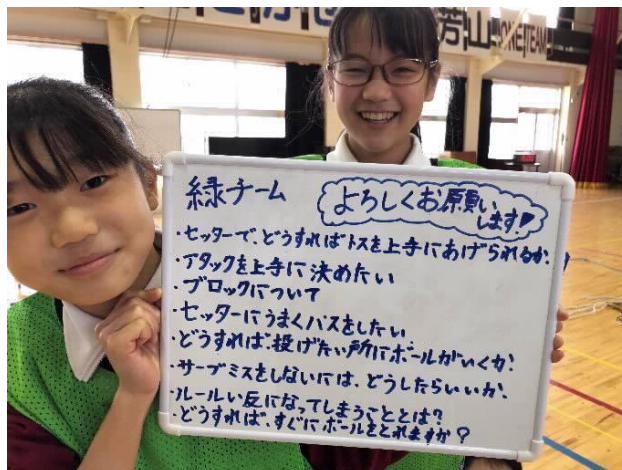 芳山
ONE TEAM
緑チーム
よろしくお願い
します!!
・セッターで、どうすればトスを上手にあげられるか。
・アタックを上手に決めたい
・ブロックについて
・セッターにうまくパスをしたい
・どうすれば、投げたい所にボールがいくか。
・サーブミスをしないには、どうしたらいいか。
・ルールい反になってしまうこととは?
・どうすれば、すぐにボールをとれますか?